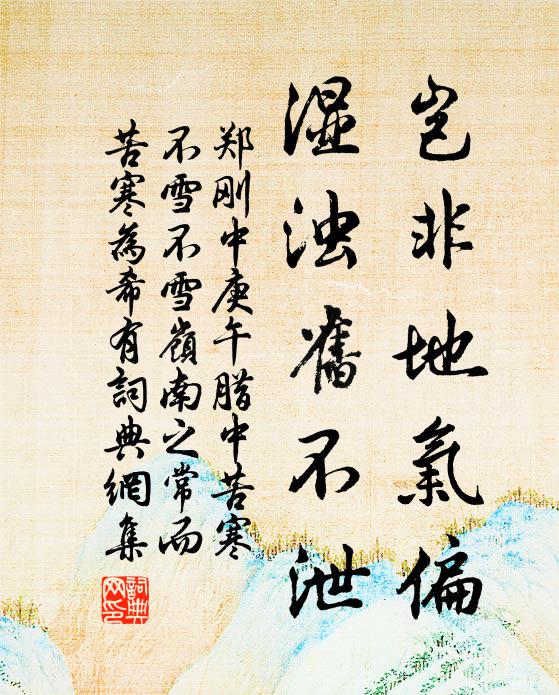 岂非地氣偏
湿浊舊不泄
郑刚中庚午腊中苦寒
不雪不雪嶺南之常而
苦寒為希有詞典網集